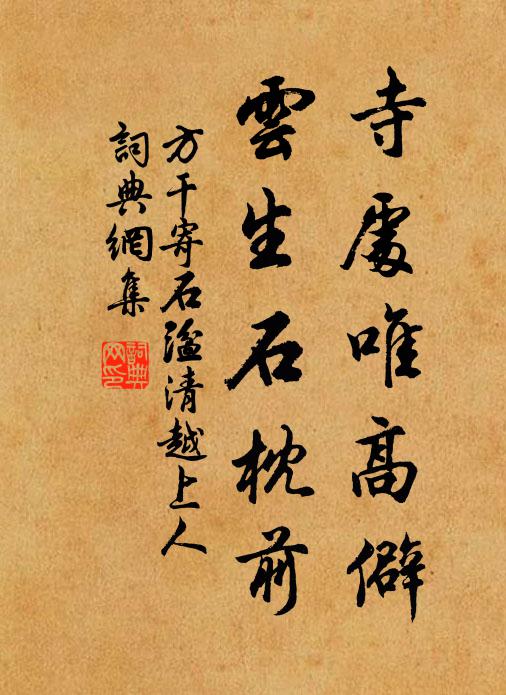 寺處唯高僻
雲生石枕前
方干寄石湓清越上人
詞典網集
詞典
網印